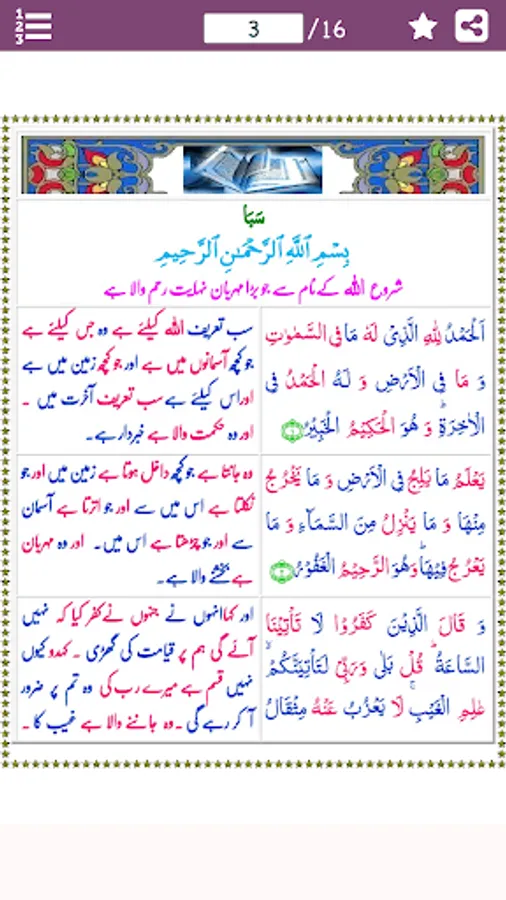 1
2
3
3 /16
سَبَا
بِسْمِ ٱللَّهِ ٱلرَّحْمَـٰنِ ٱلرَّحِيمِ
شروع اللہ کے نام سے جو بڑا مہربان نہایت رحم والا ہے
اَلْحَمْدُ لِلّٰهِ الَّذِىْ لَهٗ مَا فِى السَّمٰوٰتِ
وَ مَا فِى الْاَرْضِ وَ لَـهُ الْحَمْدُ فِى
الْاٰخِرَةِ ؕ وَ هُوَ الْحَكِيْمُ الْخَبِيْرُ
سب تعریف اللہ کیلئے ہے وہ جس کیلئے ہے
جو کچھ آسمانوں میں ہے اور جو کچھ زمین میں ہے
اور اس کیلئے ہے سب تعریف آخرت میں ۔
اور وہ حکمت والا ہے خبردار ہے۔
يَعْلَمُ مَا يَلِجُ فِى الْاَرْضِ وَ مَا يَخْرُجُ
مِنْهَا وَ مَا يَنْزِلُ مِنَ السَّمَآءِ وَ مَا
يَعْرُجُ فِيْهَا ؕ وَهُوَ الرَّحِيْمُ الْغَفُوْرُ
وہ جانتا ہے جو کچھ داخل ہوتا ہے زمین میں اور جو
نکلتا ہے اس میں سے اور جو اترتا ہے آسمان
سے اور جو چڑھتا ہے اس میں۔ اور وہ مہربان
ہے بخشنے والا ہے۔
وَ قَالَ الَّذِيْنَ كَفَرُوْا لَا تَاْتِيْنَا
السَّاعَةُ ؕ قُلْ بَلٰى وَرَبِّىْ لَتَاْتِيَنَّكُمْ ۙ
عٰلِمِ الْغَيْبِ ۚ لَا يَعْزُبُ عَنْهُ مِثْقَالُ
اور کہا انہوں نے جنہوں نے کفر کیا کہ نہیں
آئے گی ہم پر قیامت کی گھڑی ۔ کہدو کیوں
نہیں قسم ہے میرے رب کی وہ تم پر ضرور
آ کر رہے گی ۔ وہ جاننے والا ہے غیب کا ۔